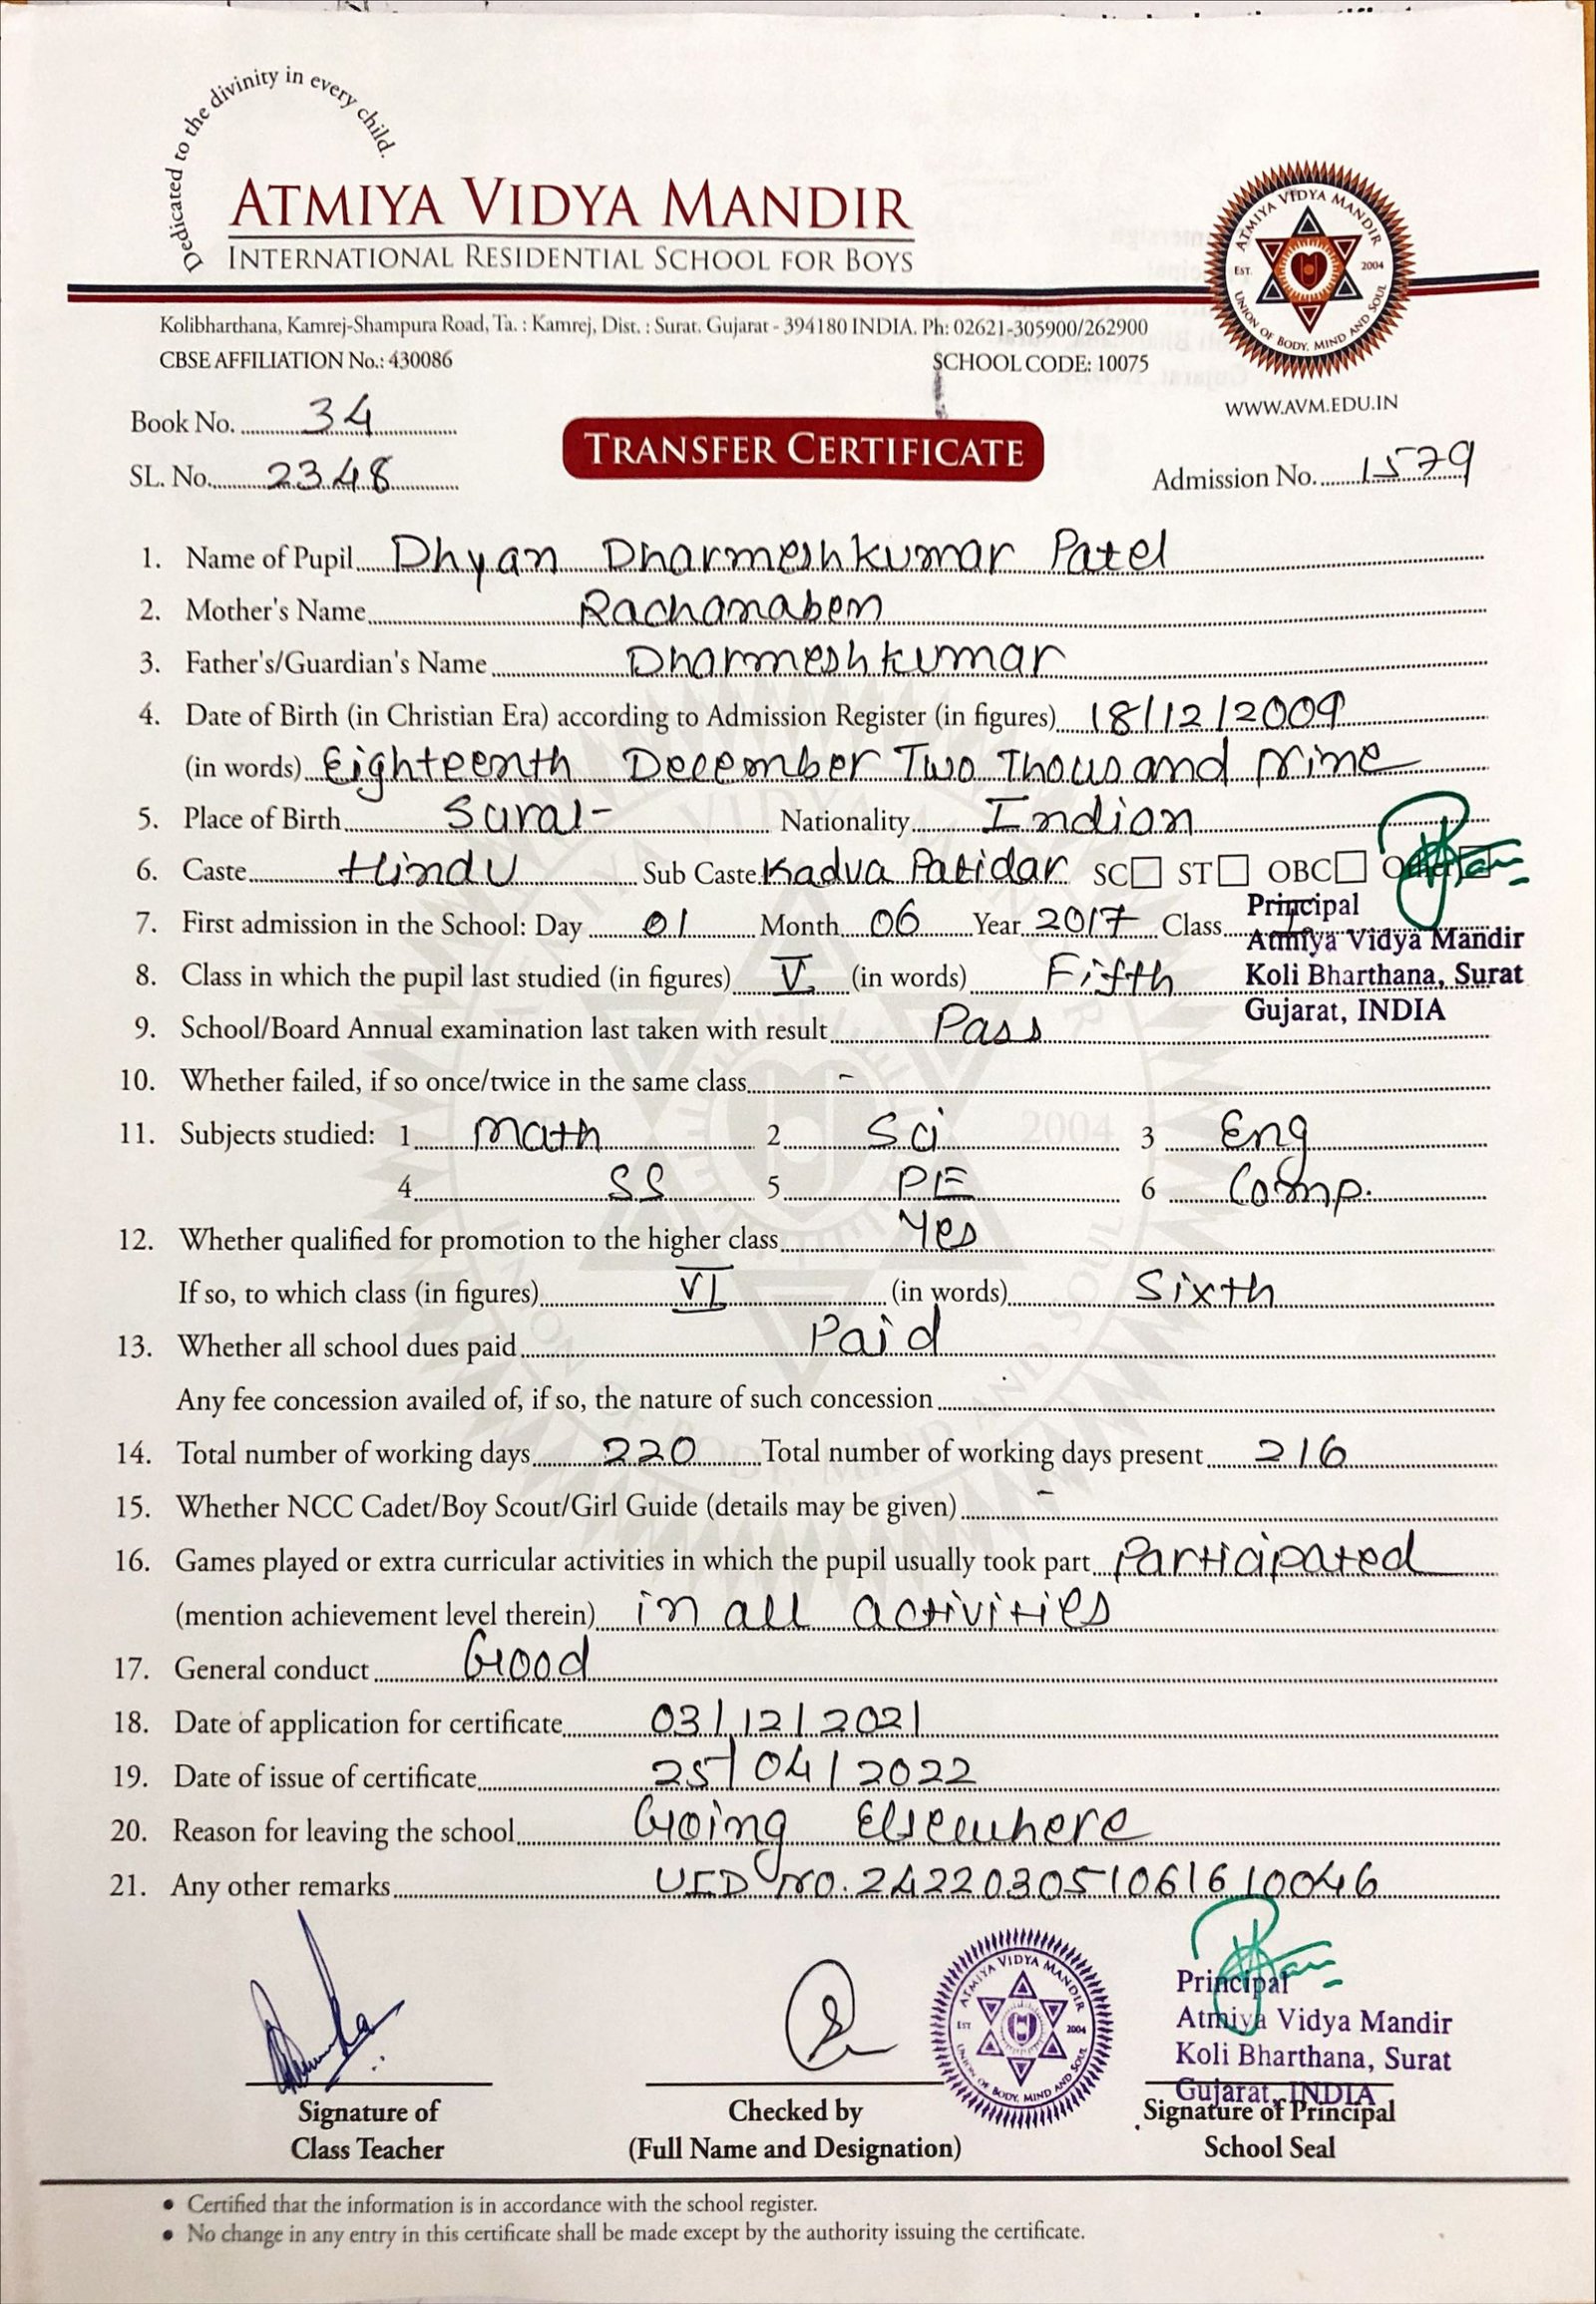 Dedicated to the divinity in every child.
ATMIYA VIDYA MANDIR
INTERNATIONAL RESIDENTIAL SCHOOL FOR BOYS
ATMIYA VIDYA MANDIR
EST. 2004
UNION OF BODY, MIND AND SOUL
Kolibharthana, Kamrej-Shampura Road, Ta. : Kamrej, Dist. : Surat. Gujarat - 394180 INDIA. Ph: 02621-305900/262900
CBSE AFFILIATION No.: 430086 SCHOOL CODE: 10075
WWW.AVM.EDU.IN
Book No. 34
TRANSFER CERTIFICATE
SL. No. 2348 Admission No. 1579
1. Name of Pupil Dhyan Dharmeshkumar Patel
2. Mother's Name Rachanaben
3. Father's/Guardian's Name Dharmeshkumar
4. Date of Birth (in Christian Era) according to Admission Register (in figures) 18/12/2009
(in words) Eighteenth December Two Thousand Nine
5. Place of Birth Surat Nationality Indian
6. Caste Hindu Sub Caste Kadva Patidar SC ST OBC
7. First admission in the School: Day 01 Month 06 Year 2017 Class
Principal
Atmiya Vidya Mandir
Koli Bharthana, Surat
Gujarat, INDIA
8. Class in which the pupil last studied (in figures) V (in words) Fifth
9. School/Board Annual examination last taken with result Pass
10. Whether failed, if so once/twice in the same class -
11. Subjects studied: 1 Math 2 Sci 3 Eng
4 SS 5 PE 6 Comp.
12. Whether qualified for promotion to the higher class Yes
If so, to which class (in figures) VI (in words) Sixth
13. Whether all school dues paid Paid
Any fee concession availed of, if so, the nature of such concession
14. Total number of working days 220 Total number of working days present 216
15. Whether NCC Cadet/Boy Scout/Girl Guide (details may be given) -
16. Games played or extra curricular activities in which the pupil usually took part Participated
(mention achievement level therein) in all activities
17. General conduct Good
18. Date of application for certificate 03/12/2021
19. Date of issue of certificate 25/04/2022
20. Reason for leaving the school Going Elsewhere
21. Any other remarks UID NO. 242203051061610046
ATMIYA VIDYA MANDIR
EST 2004
UNION OF BODY, MIND AND SOUL
Principal
Atmiya Vidya Mandir
Koli Bharthana, Surat
Gujarat, INDIA
Signature of Checked by Signature of Principal
Class Teacher (Full Name and Designation) School Seal
• Certified that the information is in accordance with the school register.
• No change in any entry in this certificate shall be made except by the authority issuing the certificate.